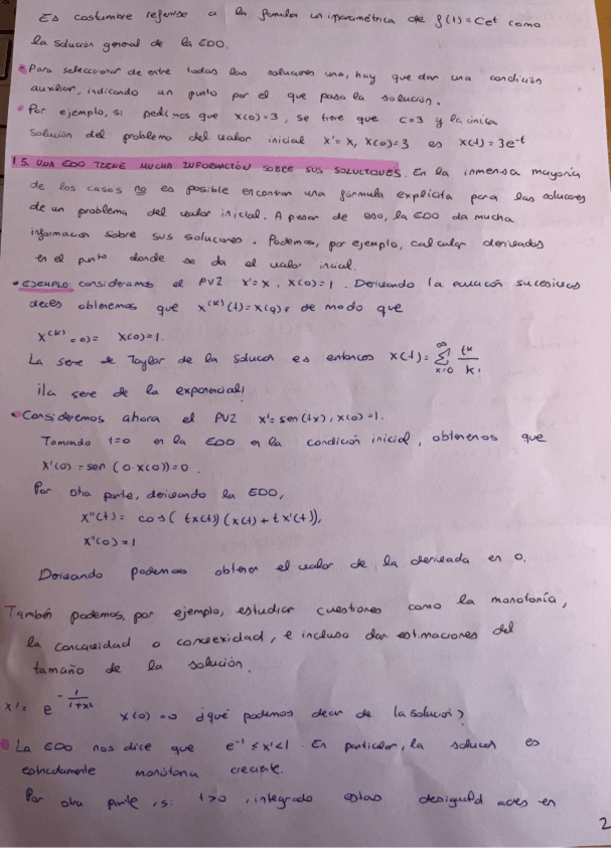 Es costumbre referirse a la fórmula uniparamétrica de f(t)=Cet como
la solución general de la EDO.
Para seleccionar de entre todas las soluciones una, hay que dar una condición
auxiliar, indicando un punto por el que pasa la solución.
Por ejemplo, si pedimos que x(0)=3, se tiene que C=3 y la única
solución del problema del valor inicial x'=x, x(0)=3 es x(t)=3e^-t
1.5. UNA EDO TIENE MUCHA INFORMACIÓN SOBRE SUS SOLUCIONES. En la inmensa mayoría
de los casos no es posible encontrar una fórmula explícita para las soluciones
de un problema del valor inicial. A pesar de eso, la EDO da mucha
información sobre sus soluciones. Podemos, por ejemplo, calcular derivadas
en el punto donde se da el valor inicial.
EJEMPLO consideramos el PVI x'=x, x(0)=1. Derivando la ecuación sucesivas
veces obtenemos que x^(k)(t)=x(t), de modo que
x^(k)(0)= x(0)=1.
La serie de Taylor de la solución es entonces x(t)= ∞∑k=0 t^k/k!
¡la serie de la exponencial!
Consideremos ahora el PVI x'=sen(tx), x(0)=1.
Tomando t=0 en la EDO en la condición inicial, obtenemos que
x'(0)=sen (0 x(0))=0.
Por otra parte, derivando la EDO,
x''(t)= cos(tx(t))(x(t)+tx'(t)),
x''(0)=1
Derivando podemos obtener el valor de la derivada en 0.
También podemos, por ejemplo, estudiar cuestiones como la monotonía,
la concavidad o convexidad, e incluso dar estimaciones del
tamaño de la solución.
x'= e^-1/(1+x²) x(0)=0 ¿qué podemos decir de la solución?
La EDO nos dice que e^-1 ≤ x' < 1. En particular, la solución es
estrictamente monótona creciente.
Por otra parte, si t>0, integrando estas desigualdades en
2